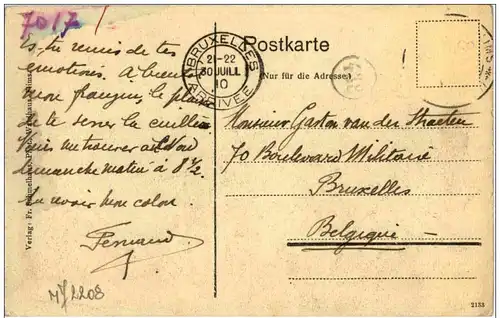 7017
Es-tu remis de tes
émotions. A bientôt
mon
le plaisir
de te serrer la
Viens me trouver
dimanche matin à 8 1/2.
Au revoir mon colon.
Fernand
M/2208
Verlag: Fr.
BRUXELLES
21-22
30 JUIL
10
ARRIVEE
Postkarte
(Nur für die Adresse)
Monsieur Gaston van der Straeten
70 Boulevard Militaire
Bruxelles
Belgique
2133